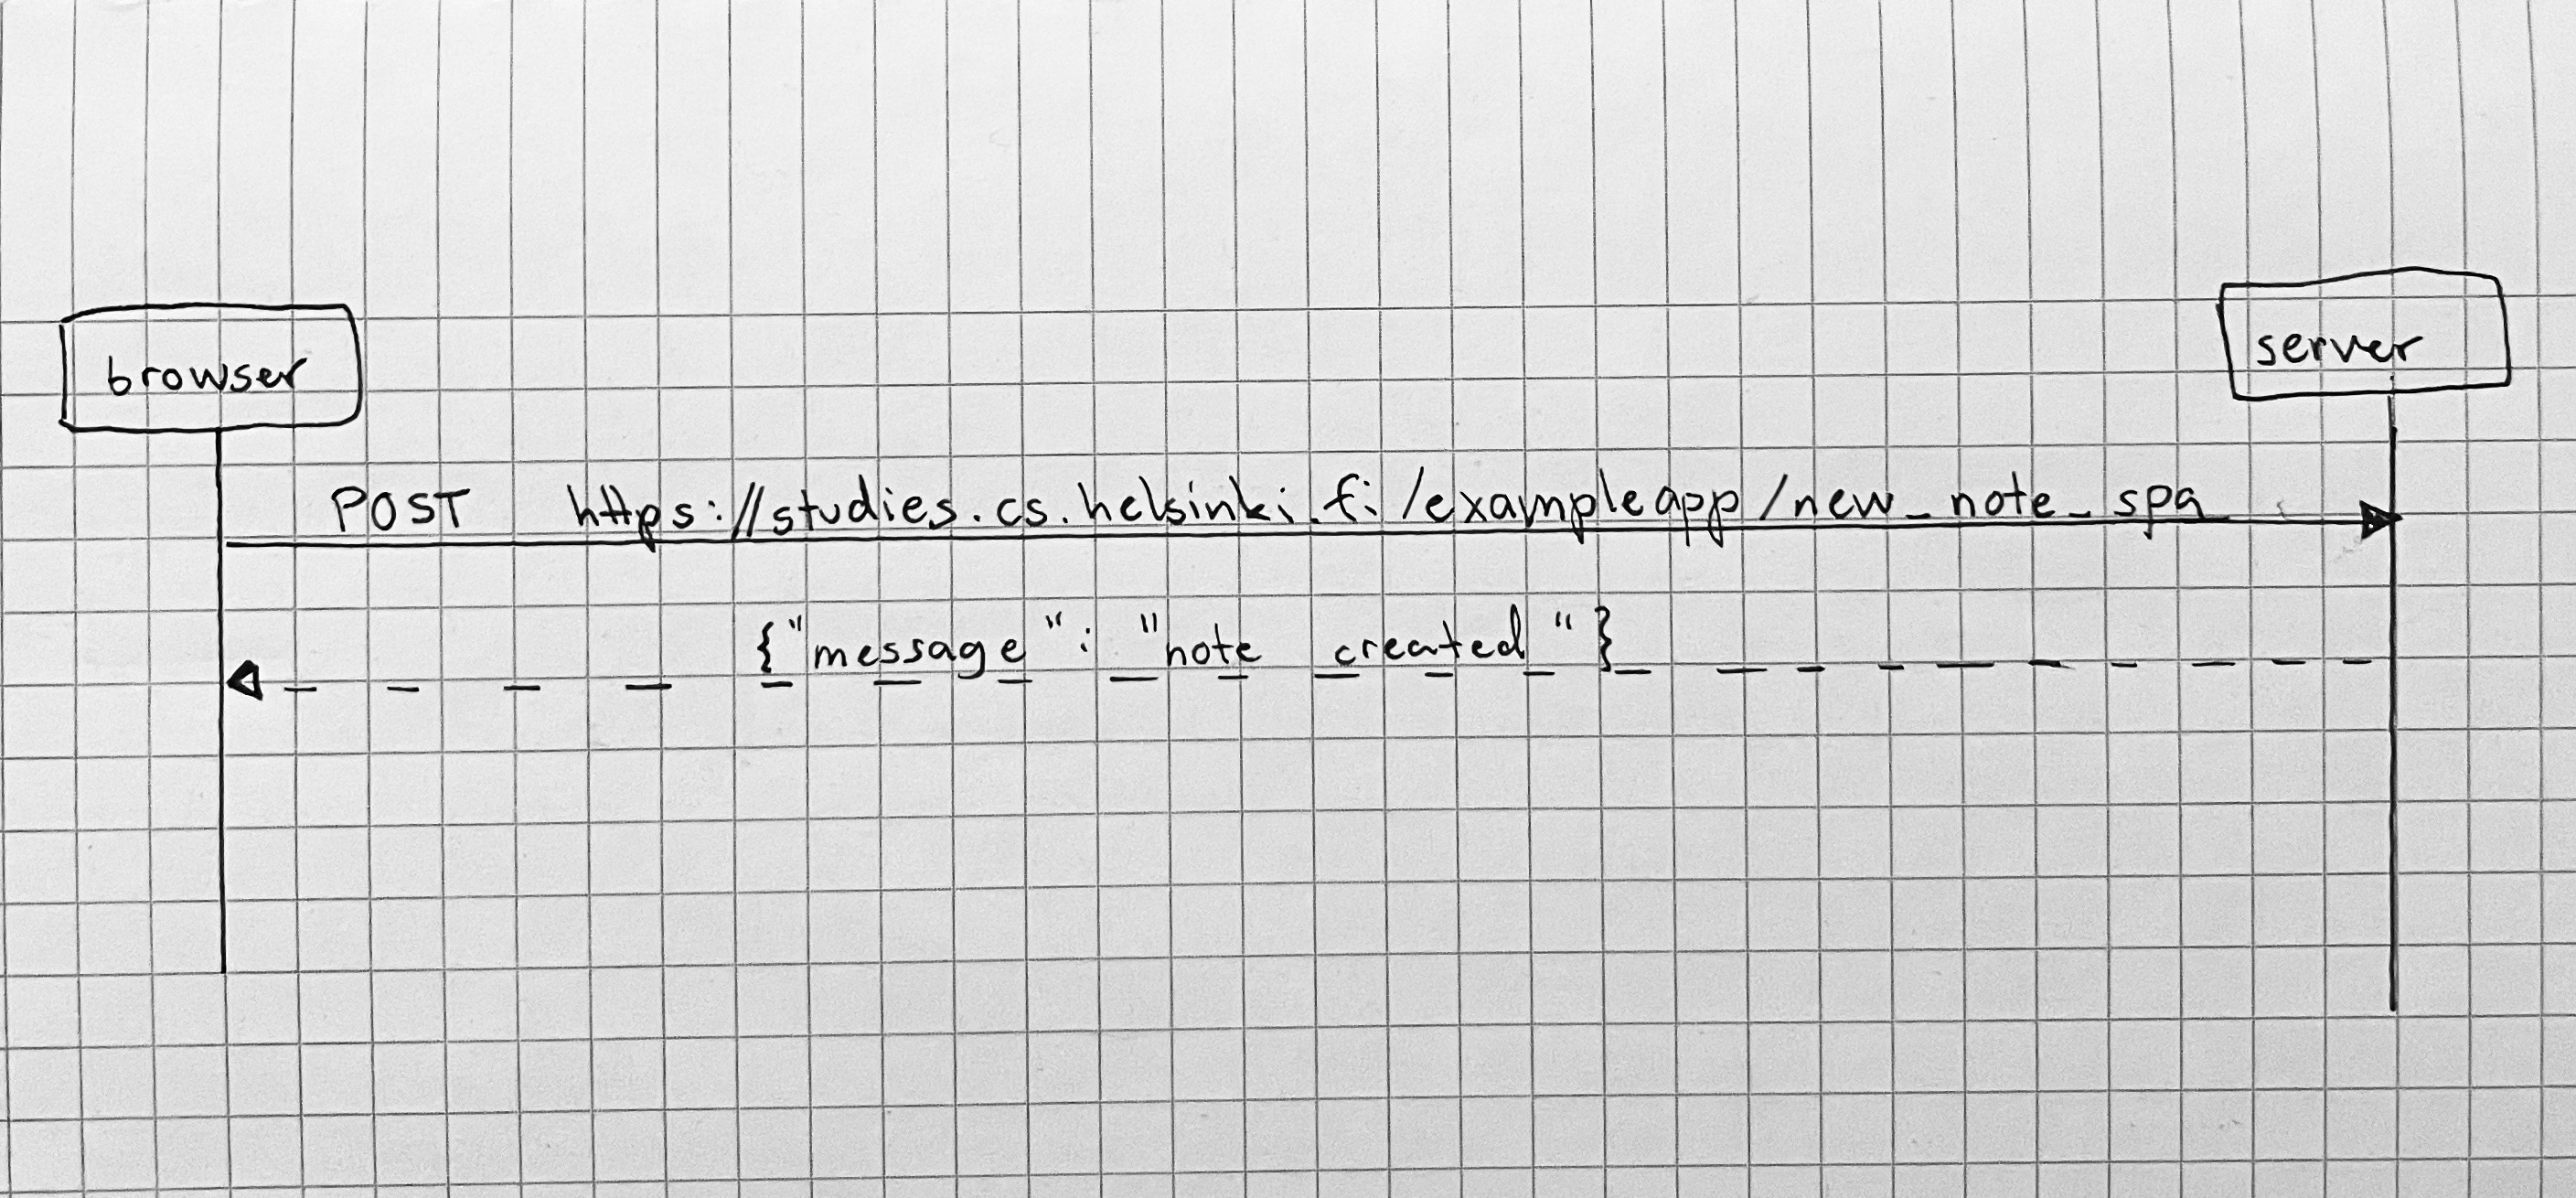 browser
server
POST https://studies.cs.helsinki.fi/exampleapp/new_note_spa
{"message": "note created"}